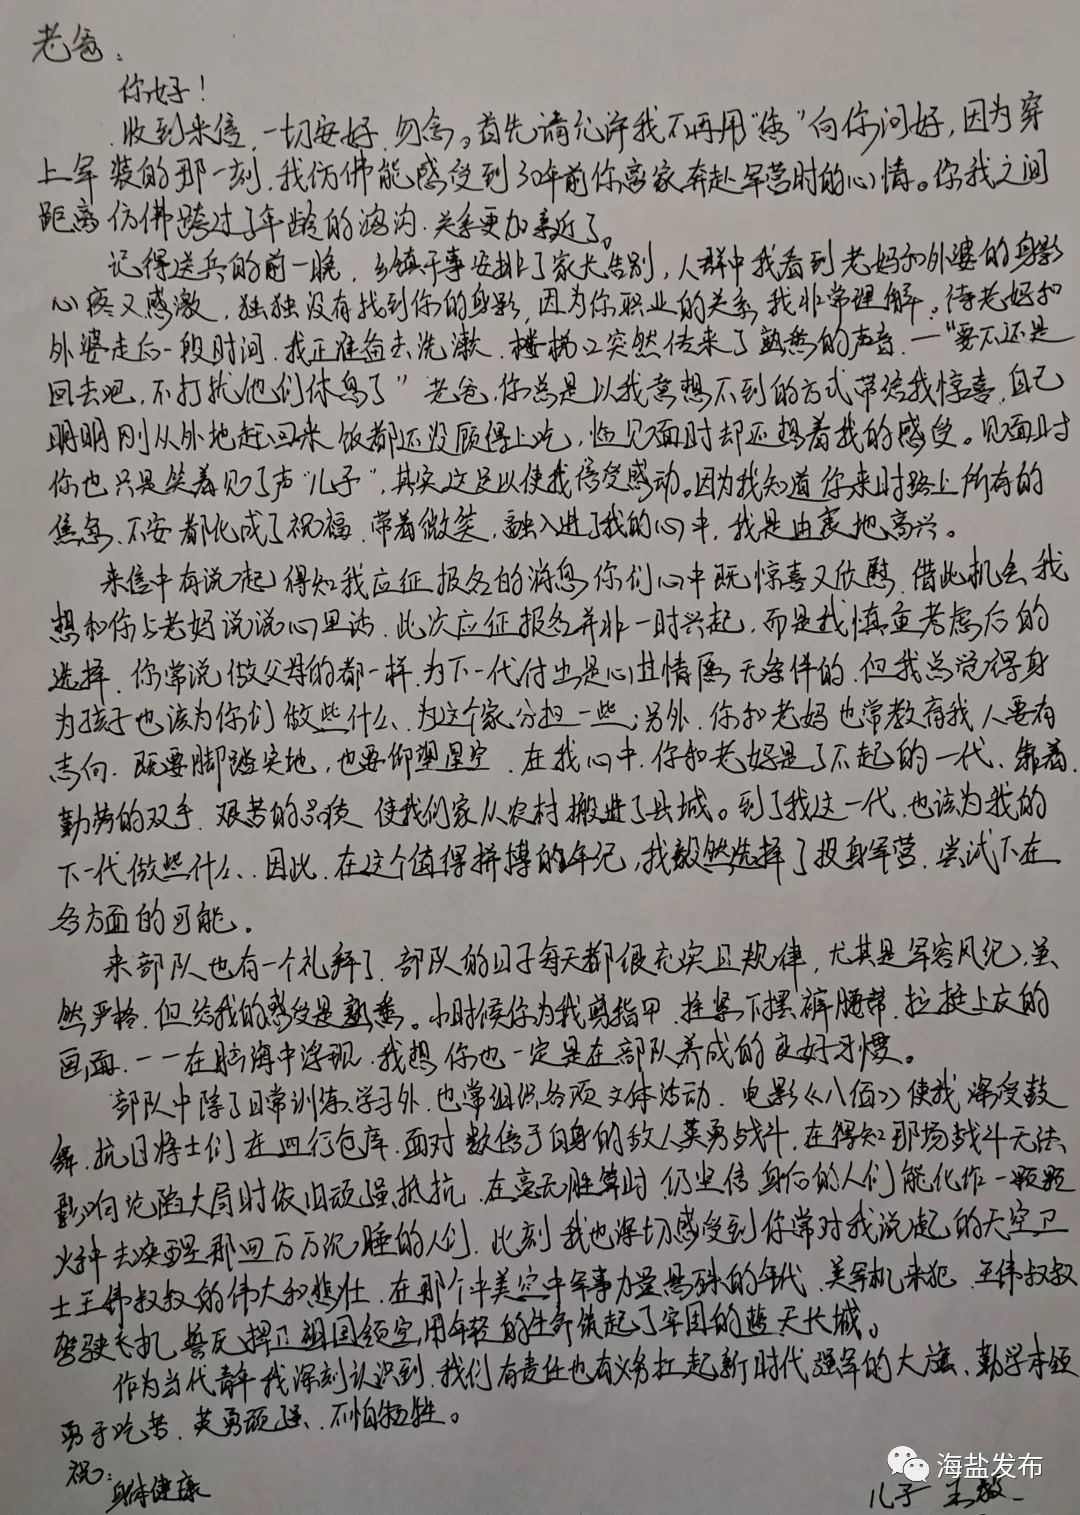 老爸：
你好！
收到来信，一切安好，勿念。首先请允许我不再用“您”向你问好，因为穿
上军装的那一刻，我仿佛能感受到30年前你离家奔赴军营时的心情。你我之间
距离仿佛跨过了年龄的鸿沟，关系更加亲近了。
记得送兵的前一晚，乡镇干事安排了家人告别，人群中我看到老妈和外婆的身影
心疼又感激，独独没有找到你的身影，因为你职业的关系，我非常理解。待老妈和
外婆走后一段时间，我正准备去洗漱，楼梯口突然传来了熟悉的声音，一“要不还是
回去吧，不打扰他们休息了”老爸，你总是以我意想不到的方式带给我惊喜，自己
明明刚从外地赶回来饭都还没顾得上吃，但见面时却还想着我的感受。见面时
你也只是笑着叫了声“儿子”，其实这足以使我倍受感动。因为我知道你来时路上所有的
焦急、不安都化成了祝福，带着微笑，融入进了我的心中，我是由衷地高兴。
来信中有说起得知我应征报名的消息你们心中既惊喜又欣慰，借此机会我
想和你与老妈说说心里话，此次应征报名并非一时兴起，而是我慎重考虑后的
选择，你常说做父母的都一样，为下一代付出是心甘情愿无条件的，但我总觉得身
为孩子也该为你们做些什么、为这个家分担一些；另外，你和老妈也常教育我人要有
志向，既要脚踏实地，也要仰望星空，在我心中，你和老妈是了不起的一代、靠着
勤劳的双手、艰苦的品质，使我们家从农村搬进了县城。到了我这一代，也该为我的
下一代做些什么、因此，在这个值得拼搏的年纪，我毅然选择了投身军营，尝试下在
各方面的可能。
来部队也有一个礼拜了，部队的日子每天都很充实且规律，尤其是军容风纪，虽
然严格，但给我的感受是熟悉。小时候你为我剪指甲，拴紧下摆裤腰带，拉挺上衣的
画面，一一在脑海中浮现，我想你也一定是在部队养成的良好习惯。
部队中除了日常训练、学习外，也常组织各项文体活动，电影《八佰》使我深受鼓
舞，抗日将士们在四行仓库，面对数倍于自身的敌人英勇战斗，在得知那场战斗无法
影响沦陷大局时依旧顽强抵抗，在毫无胜算时，仍坚信身后的人们能化作一颗颗
火种去唤醒那四万万沉睡的人们，此刻我也深切感受到你常对我说起的天空卫
士王伟叔叔的伟大和悲壮，在那个中美空中军事力量悬殊的年代，美军机来犯，王伟叔叔
驾驶飞机，誓死捍卫祖国领空，用年轻的生命筑起了牢固的蓝天长城。
作为当代青年我深刻认识到，我们有责任也有义务扛起新时代强军的大旗、勤学本领
勇于吃苦，英勇顽强、不怕牺牲。
祝：
身体健康
儿子 王毅
海盐发布